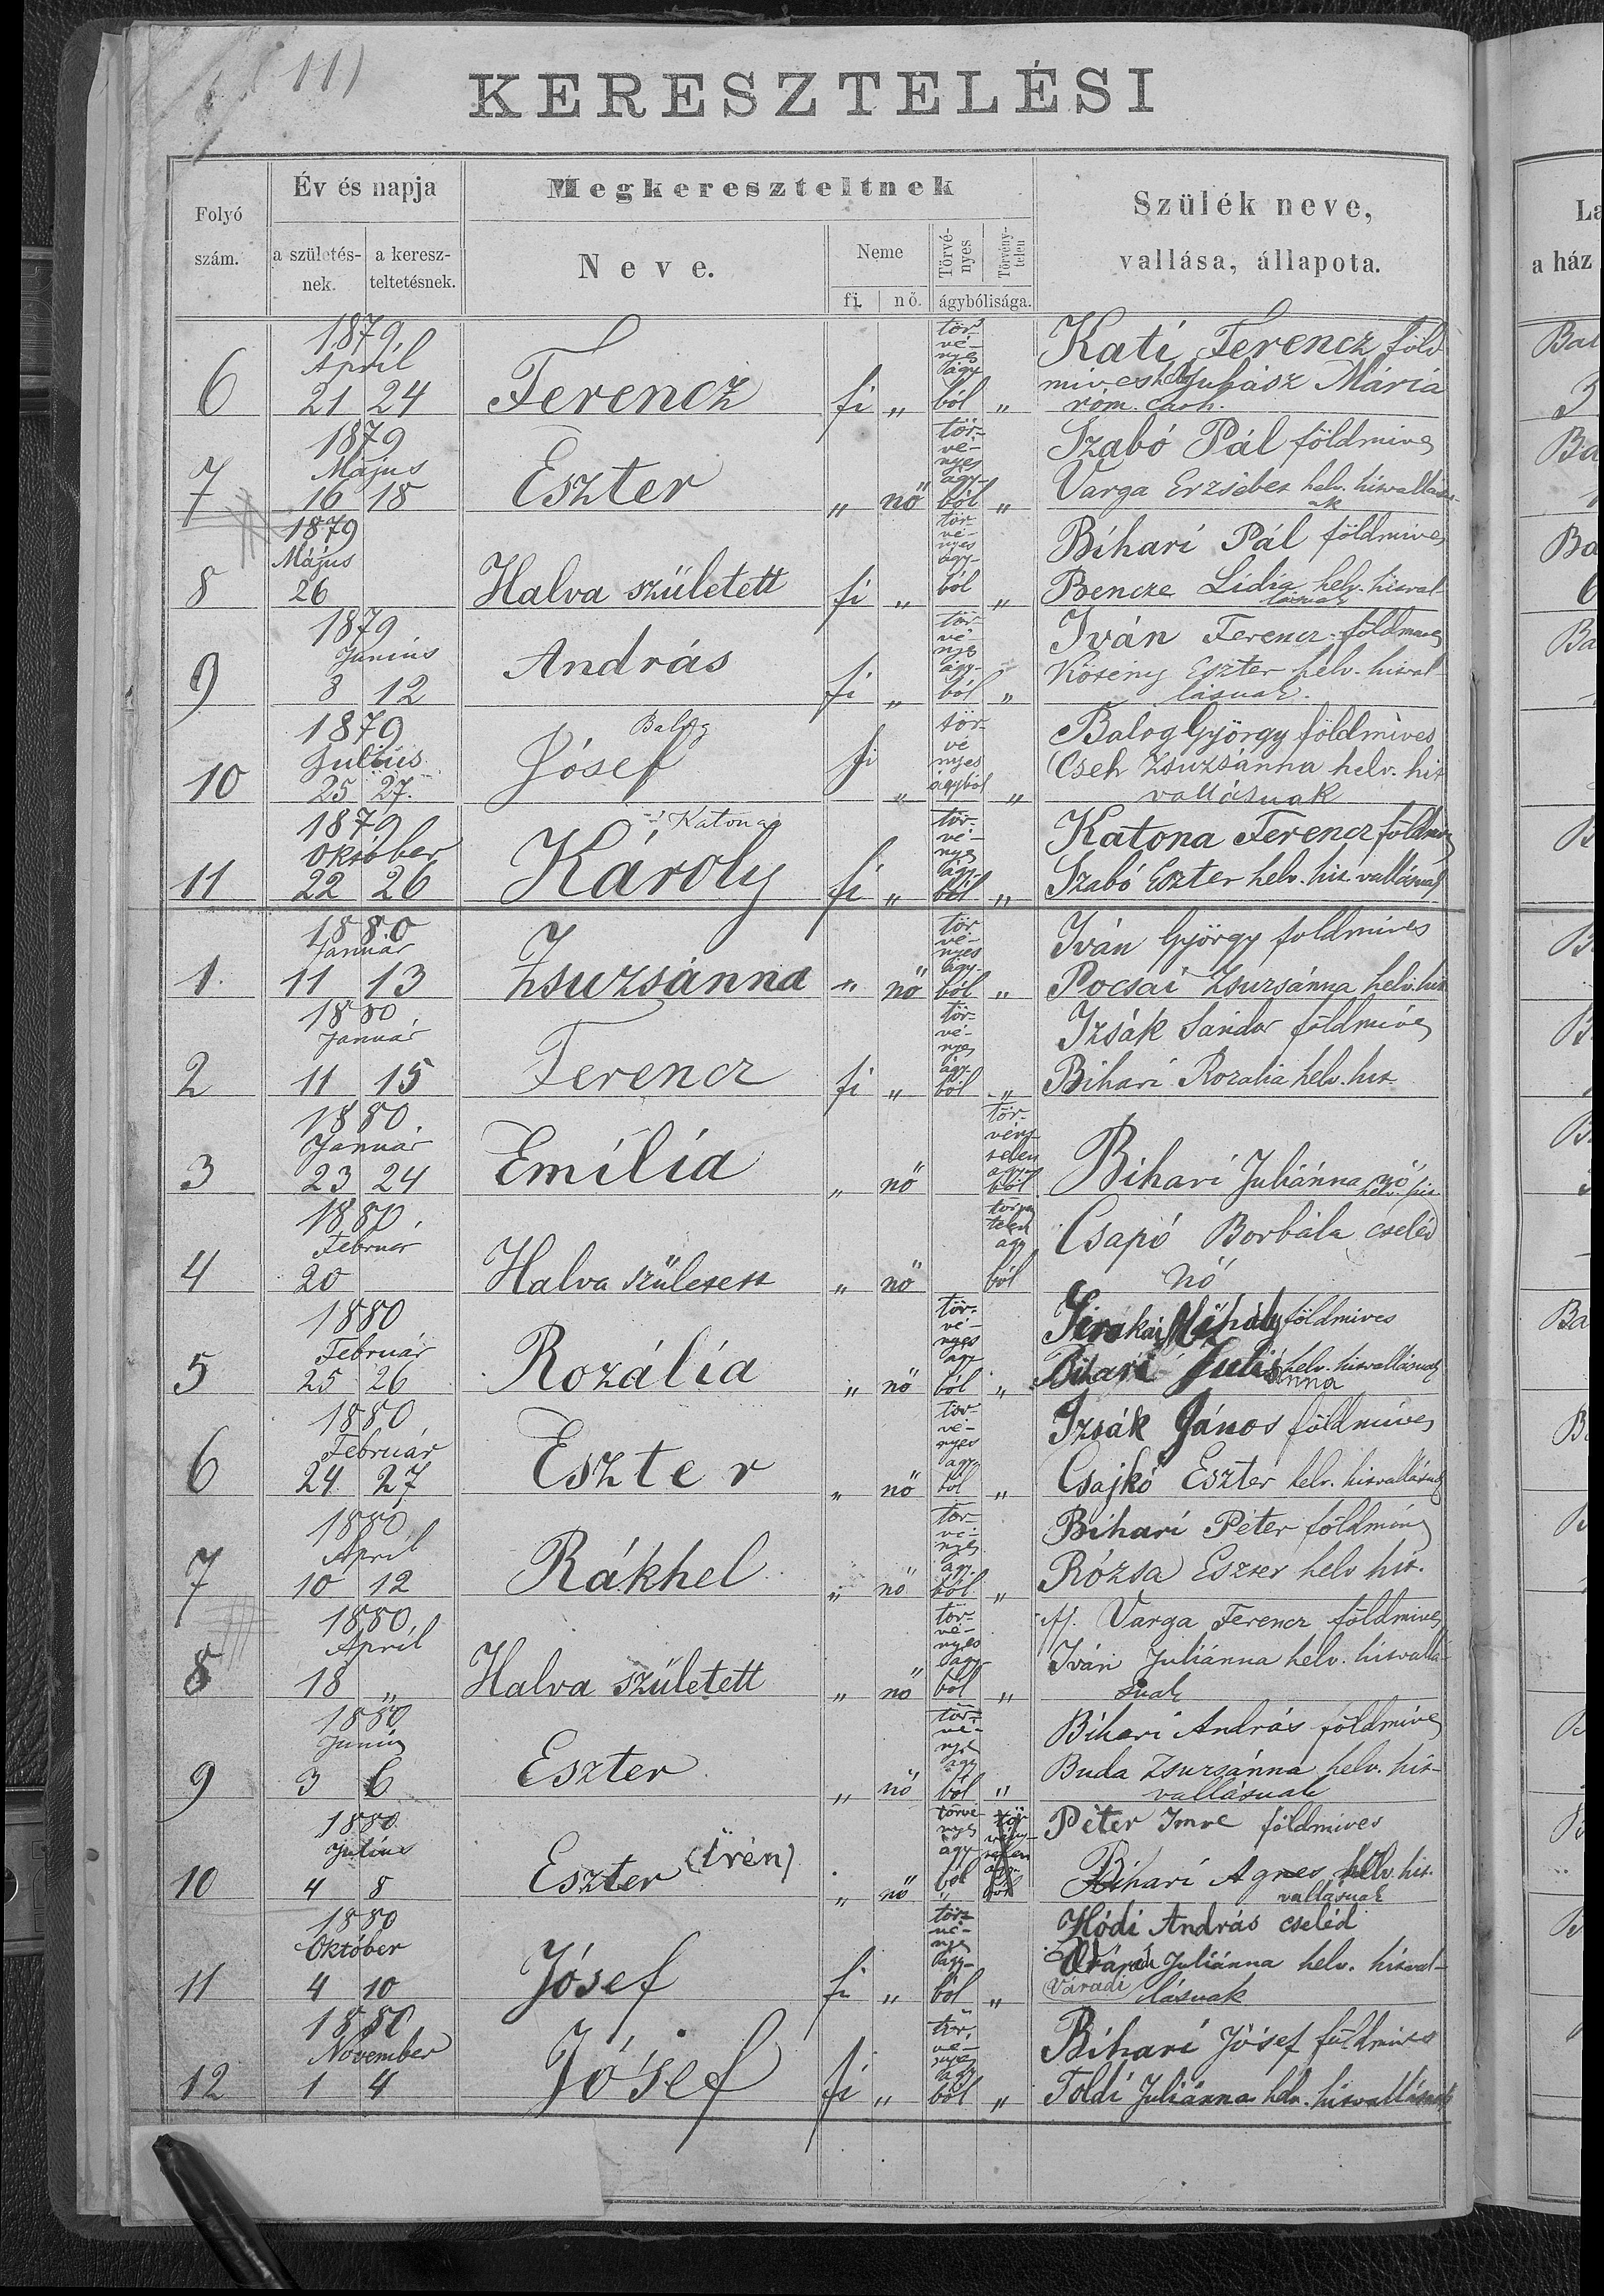 11)
KERESZTELÉSI
Folyó szám.
Év és napja
a születés-nek.
a keresz-teltetésnek.
Megkereszteltnek
Neve.
Neme
fi. nő.
Törvé-nyes
Törvény-telen
ágybólisága.
Szülék neve,
vallása, állapota.
La
a ház
1879
April
6 21 24 Ferencz fi „ tör-vé-nyes ágy-ból „
Kati Ferencz föld
mives Juhász Mária
róm. cath.
1879
Május
7 16 18 Eszter „ nő tör-vé-nyes ágy-ból „
Szabó Pál földmives
Varga Erzsébet helv. hitvallásu-
ak
1879
Május
8 26 Halva született fi „ tör-vé-nyes ágy-ból „
Bihari Pál földmives
Bencze Lidia helv. hitval-
lásuak
1879
Junius
9 3 12 András fi „ tör-vé-nyes ágy-ból „
Iván Ferencz földmives
Eszter helv. hitval-
lásuak.
1879
Julius
10 25 27. Balog
Jósef fi „ tör-vé nyes ágyból „
Balog György földmives
Cseh Zsuzsánna helv. hit
vallásuak
1879
Október
11 22 26 Katona
Károly fi „ tör-vé-nyes ágy-ból „
Katona Ferencz földmives
Szabó Eszter helv. hit. vallásuak
1880
Január
1. 11 13 Zsuzsánna „ nő tör-vé-nyes ágy-ból „
Iván György földmives
Pocsai Zsuzsánna helv. hit
1880
Január
2 11 15 Ferencz fi „ tör-vé-nyes ágy-ból „
Izsák Sándor földmives
Bihari Rozalia helv. hit
1880.
Január
3 23 24 Emília „ nő tör-vény-telen ágy-ból
Bihari Juliánna nő
helv. hit
1880.
Februar
4 20 Halva született „ nő törvénytelen ágy ból
Csapó Borbála cseléd
nő
1880
Február
5 25 26 Rozália „ nő tör-vé-nyes ágy-ból „
Mihály földmives
Bihari Juliánna helv. hitvallásuak
1880
Február
6 24 27 Eszter „ nő tör-vé-nyes ágy-ból „
Izsák János földmives
Csajkó Eszter helv. hitvallásuak
1880
April
7 10 12 Rákhel „ nő tör-vé-nyes ágy-ból „
Bihari Péter földmives
Rózsa Eszter helv hit.
1880.
April
8 18 „ Halva született „ nő tör-vé-nyes ágy-ból „
ifj. Varga Ferencz földmives
Iván Juliánna helv. hitvallá-
suak
1880
Junius
9 3 6 Eszter „ nő tör-vé-nyes ágy-ból „
Bihari András földmives
Buda Zsuzsánna helv. hit-
vallásuak
1880
Julius
10 4 8 Eszter (Irén) „ nő törvé-nyes ágy-ból „ tör-vény-telen ágy-ból
Péter Imre földmives
Bihari Agnes helv. hit.
vallásuak
1880
Október
11 4 10 Jósef fi „ tör-vé-nyes ágy-ból „
Hódi András cseléd
Váradi Juliánna helv. hitval-
Váradi lásuak
1880
November
12 1 4 Jósef fi „ tör-vé-nyes ágy-ból „
Bihari Jósef földmives
Toldi Juliánna helv. hitvallásuak